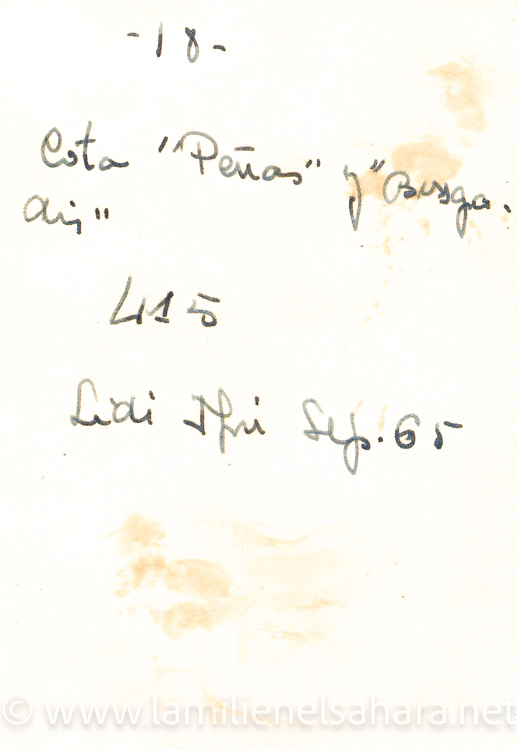 -18-
Cota "Peñas" y "Buyga.
din"
415
Sidi Ifni Sep. 65
© www.lamilienelsahara.net